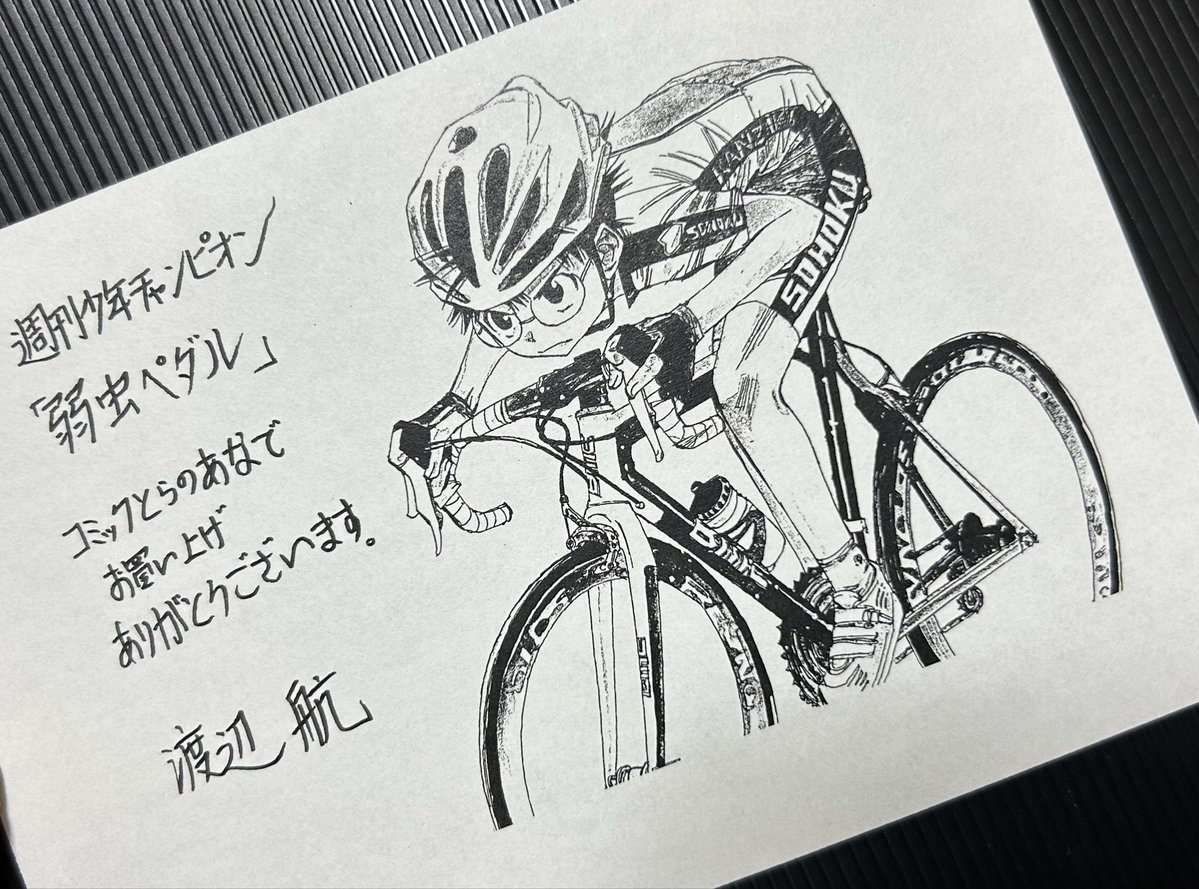 週刊少年チャンピオン
「弱虫ペダル」
コミックとらのあなで
お買い上げ
ありがとうございます。
渡辺 航
SOHOKU
SOHOKU